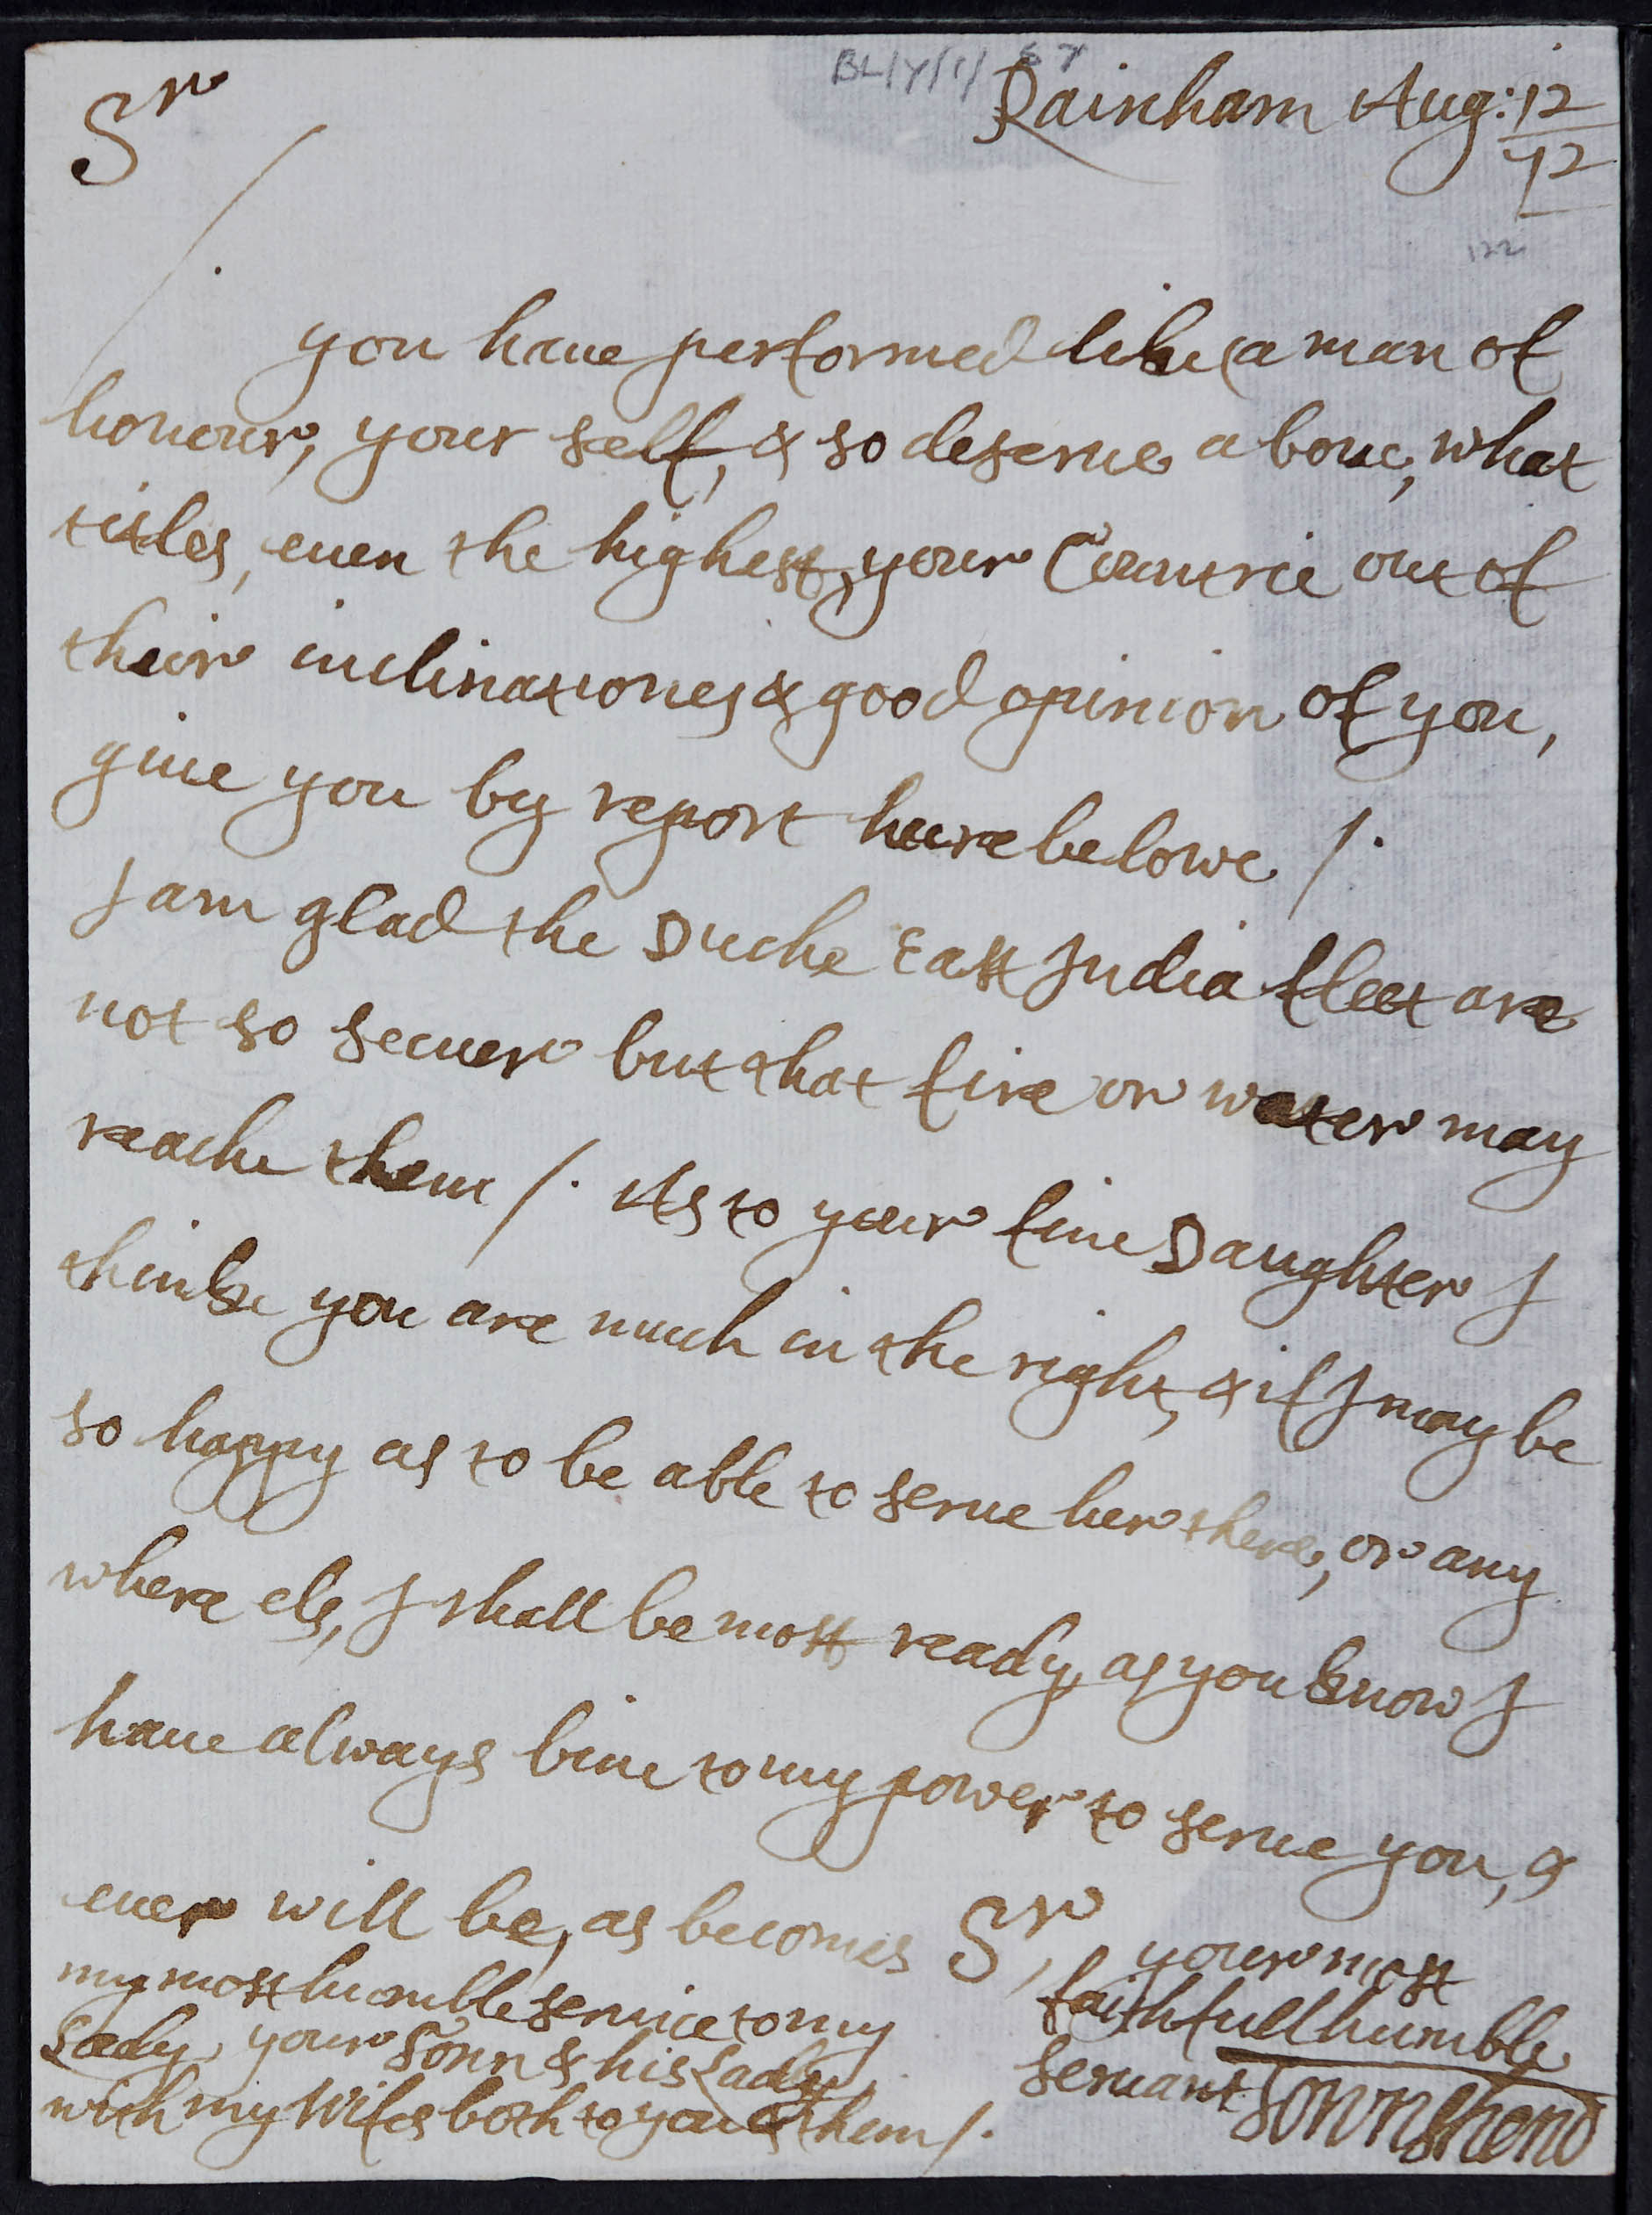 BL/Y/1/ 57
Rainham Aug: 12
72
Sr
122
you haue performed like a man of
honour, your self, & so deserue aboue, what
titles, euen the highest, your Countrie out of
their inclinationes & good opinion of you,
giue you by report heere belowe /.
I am glad the Duche East India fleet are
not so secuer but that fire or water may
reache them /. As to your fine Daughter I
thinke you are much in the right, & if I may be
so happy as to be able to serue her there, or any
where els, I shall be most ready, as you know I
haue always bine to my power to serue you, &
euer will be, as becomes Sr,
your most
faithfull humble
seruant Townshend
my most humble seruice to my
Lady, your Sonn & his Lady
with my Wifes both to you & them /.